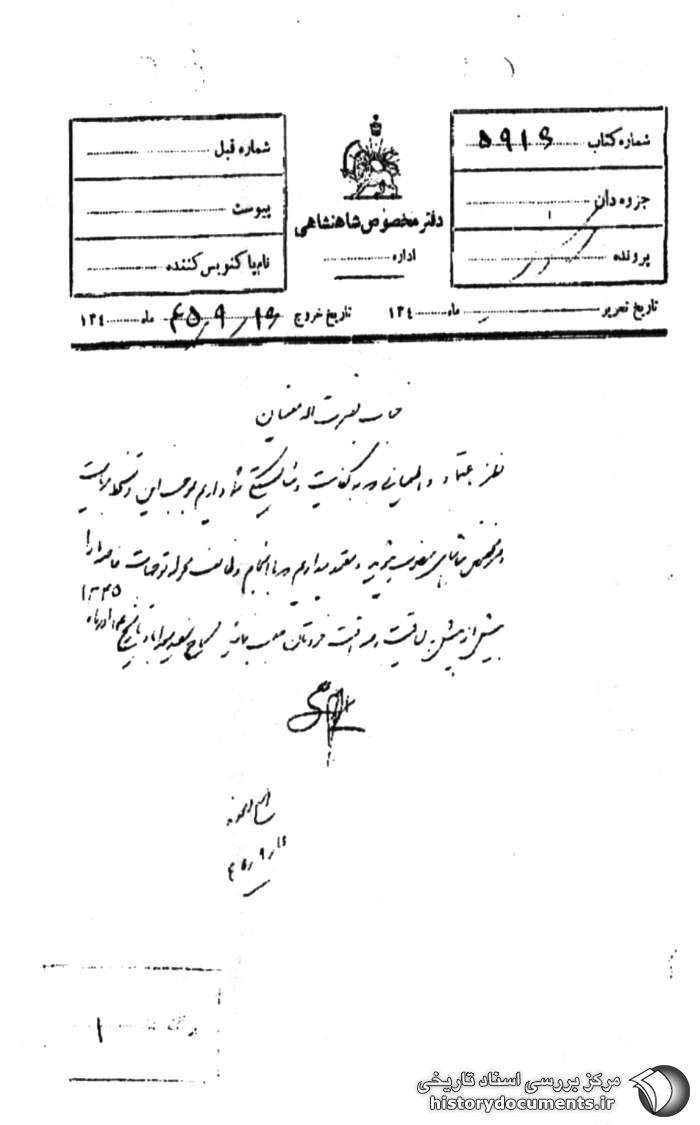 شماره کتاب ۵۹۱۶
جزوه دان
پرونده
دفتر مخصوص شاهنشاهی
اداره
شماره قبل
پیوست
نام پاکنویس کننده
تاریخ تحریر ماه ۱۳۴
تاریخ خروج ۱۶ / ۹ / ۴۵ ماه ۱۳۴
جناب نصرت اله معینیان
نظر باعتماد و اطمینانی که به کفایت و شایستگی شما داریم بموجب این دستخط بریاست
دفتر مخصوص شاهنشاهی منصوب میشوید و معتقدیم که با انجام وظایف محوله توجهات خاصه ما را
بیش از پیش به لیاقت و صداقت خودتان جلب نمائید کاخ سعدآباد بتاریخ آذرماه ۱۳۴۵
۴۵ / ۹
۱
مرکز بررسی اسناد تاریخی
historydocuments.ir